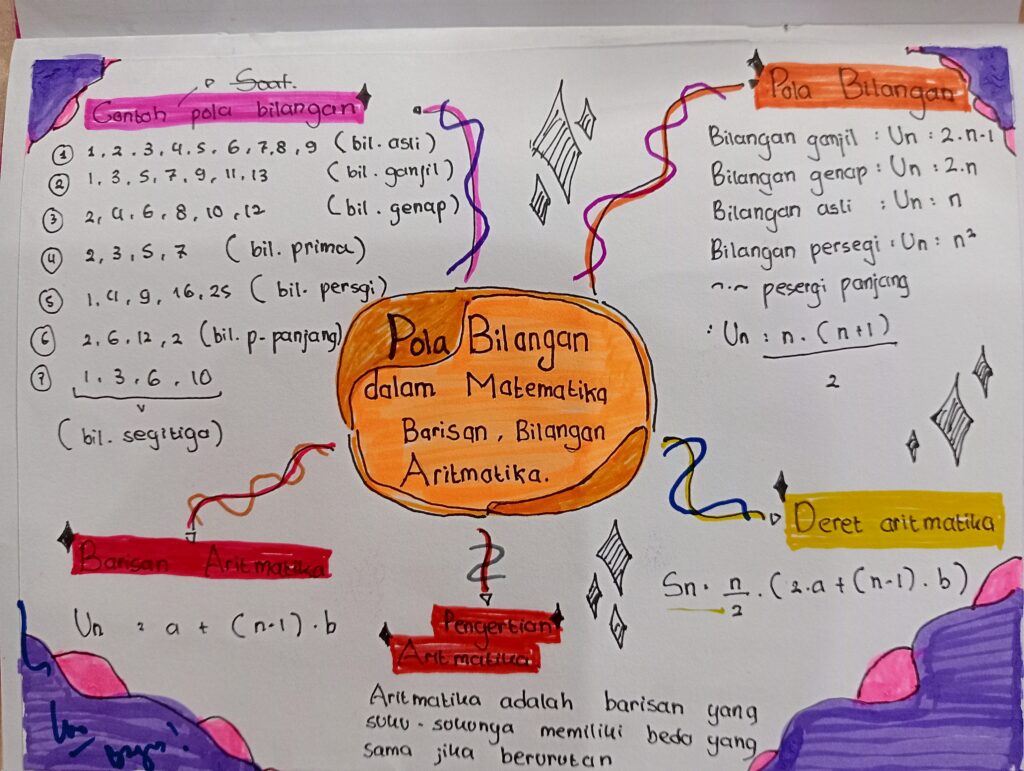 Soat.
Contoh pola bilangan
① 1, 2, 3, 4, 5, 6, 7, 8, 9 (bil. asli)
② 1, 3, 5, 7, 9, 11, 13 (bil. ganjil)
③ 2, 4, 6, 8, 10, 12 (bil. genap)
④ 2, 3, 5, 7 (bil. prima)
⑤ 1, 4, 9, 16, 25 (bil. persgi)
⑥ 2, 6, 12, 2 (bil. p-panjang)
⑦ 1, 3, 6, 10
(bil. segitiga)
Pola Bilangan
Bilangan ganjil : Un : 2.n-1
Bilangan genap : Un : 2.n
Bilangan asli : Un : n
Bilangan persegi : Un : n²
~.~ pesergi panjang
: Un : n. (n+1)
2
Pola Bilangan
dalam Matematika
Barisan, Bilangan
Aritmatika.
Barisan Aritmatika
Un : a + (n-1) . b
Pengertian
Aritmatika
Aritmatika adalah barisan yang
suku-sukunya memiliki beda yang
sama jika berurutan
Deret aritmatika
Sn . n/2 . (2.a + (n-1) . b)